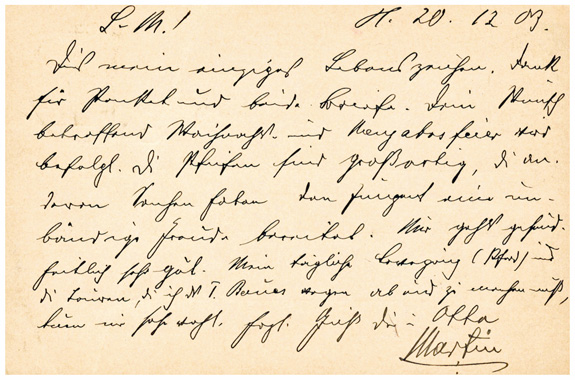 L. M.! H. 20. 12 03.
Dies mein einziges Lebenszeichen. Dank
für Packet und beide Briefe. Dein Wunsch
betreffend Weihnachts- und Neujahrsfeier wird
befolgt. Die Pfeifen sind großartig, die an-
deren Sachen haben den Jungens eine un-
bändige Freude bereitet. Mir geht's gesund-
heitlich sehr gut. Meine tägliche Bewegung (Pferd) und
die Touren, die ich des T. Baues wegen ab und zu machen muß,
tuen mir sehr wohl. Herzl. Gruß Dir u. Otto
Martin